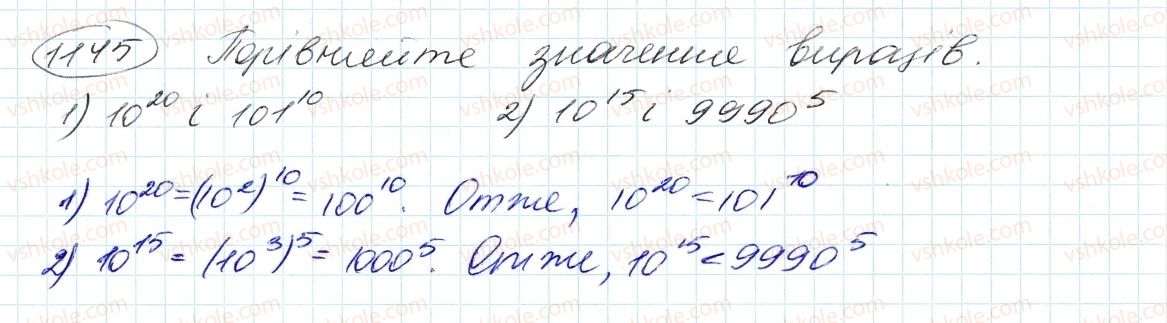 1145 Порівняйте значення виразів.
1) 10²⁰ і 101¹⁰ 2) 10¹⁵ і 9990⁵
1) 10²⁰ = (10²)¹⁰ = 100¹⁰. Отже, 10²⁰ < 101¹⁰
2) 10¹⁵ = (10³)⁵ = 1000⁵. Отже, 10¹⁵ < 9990⁵